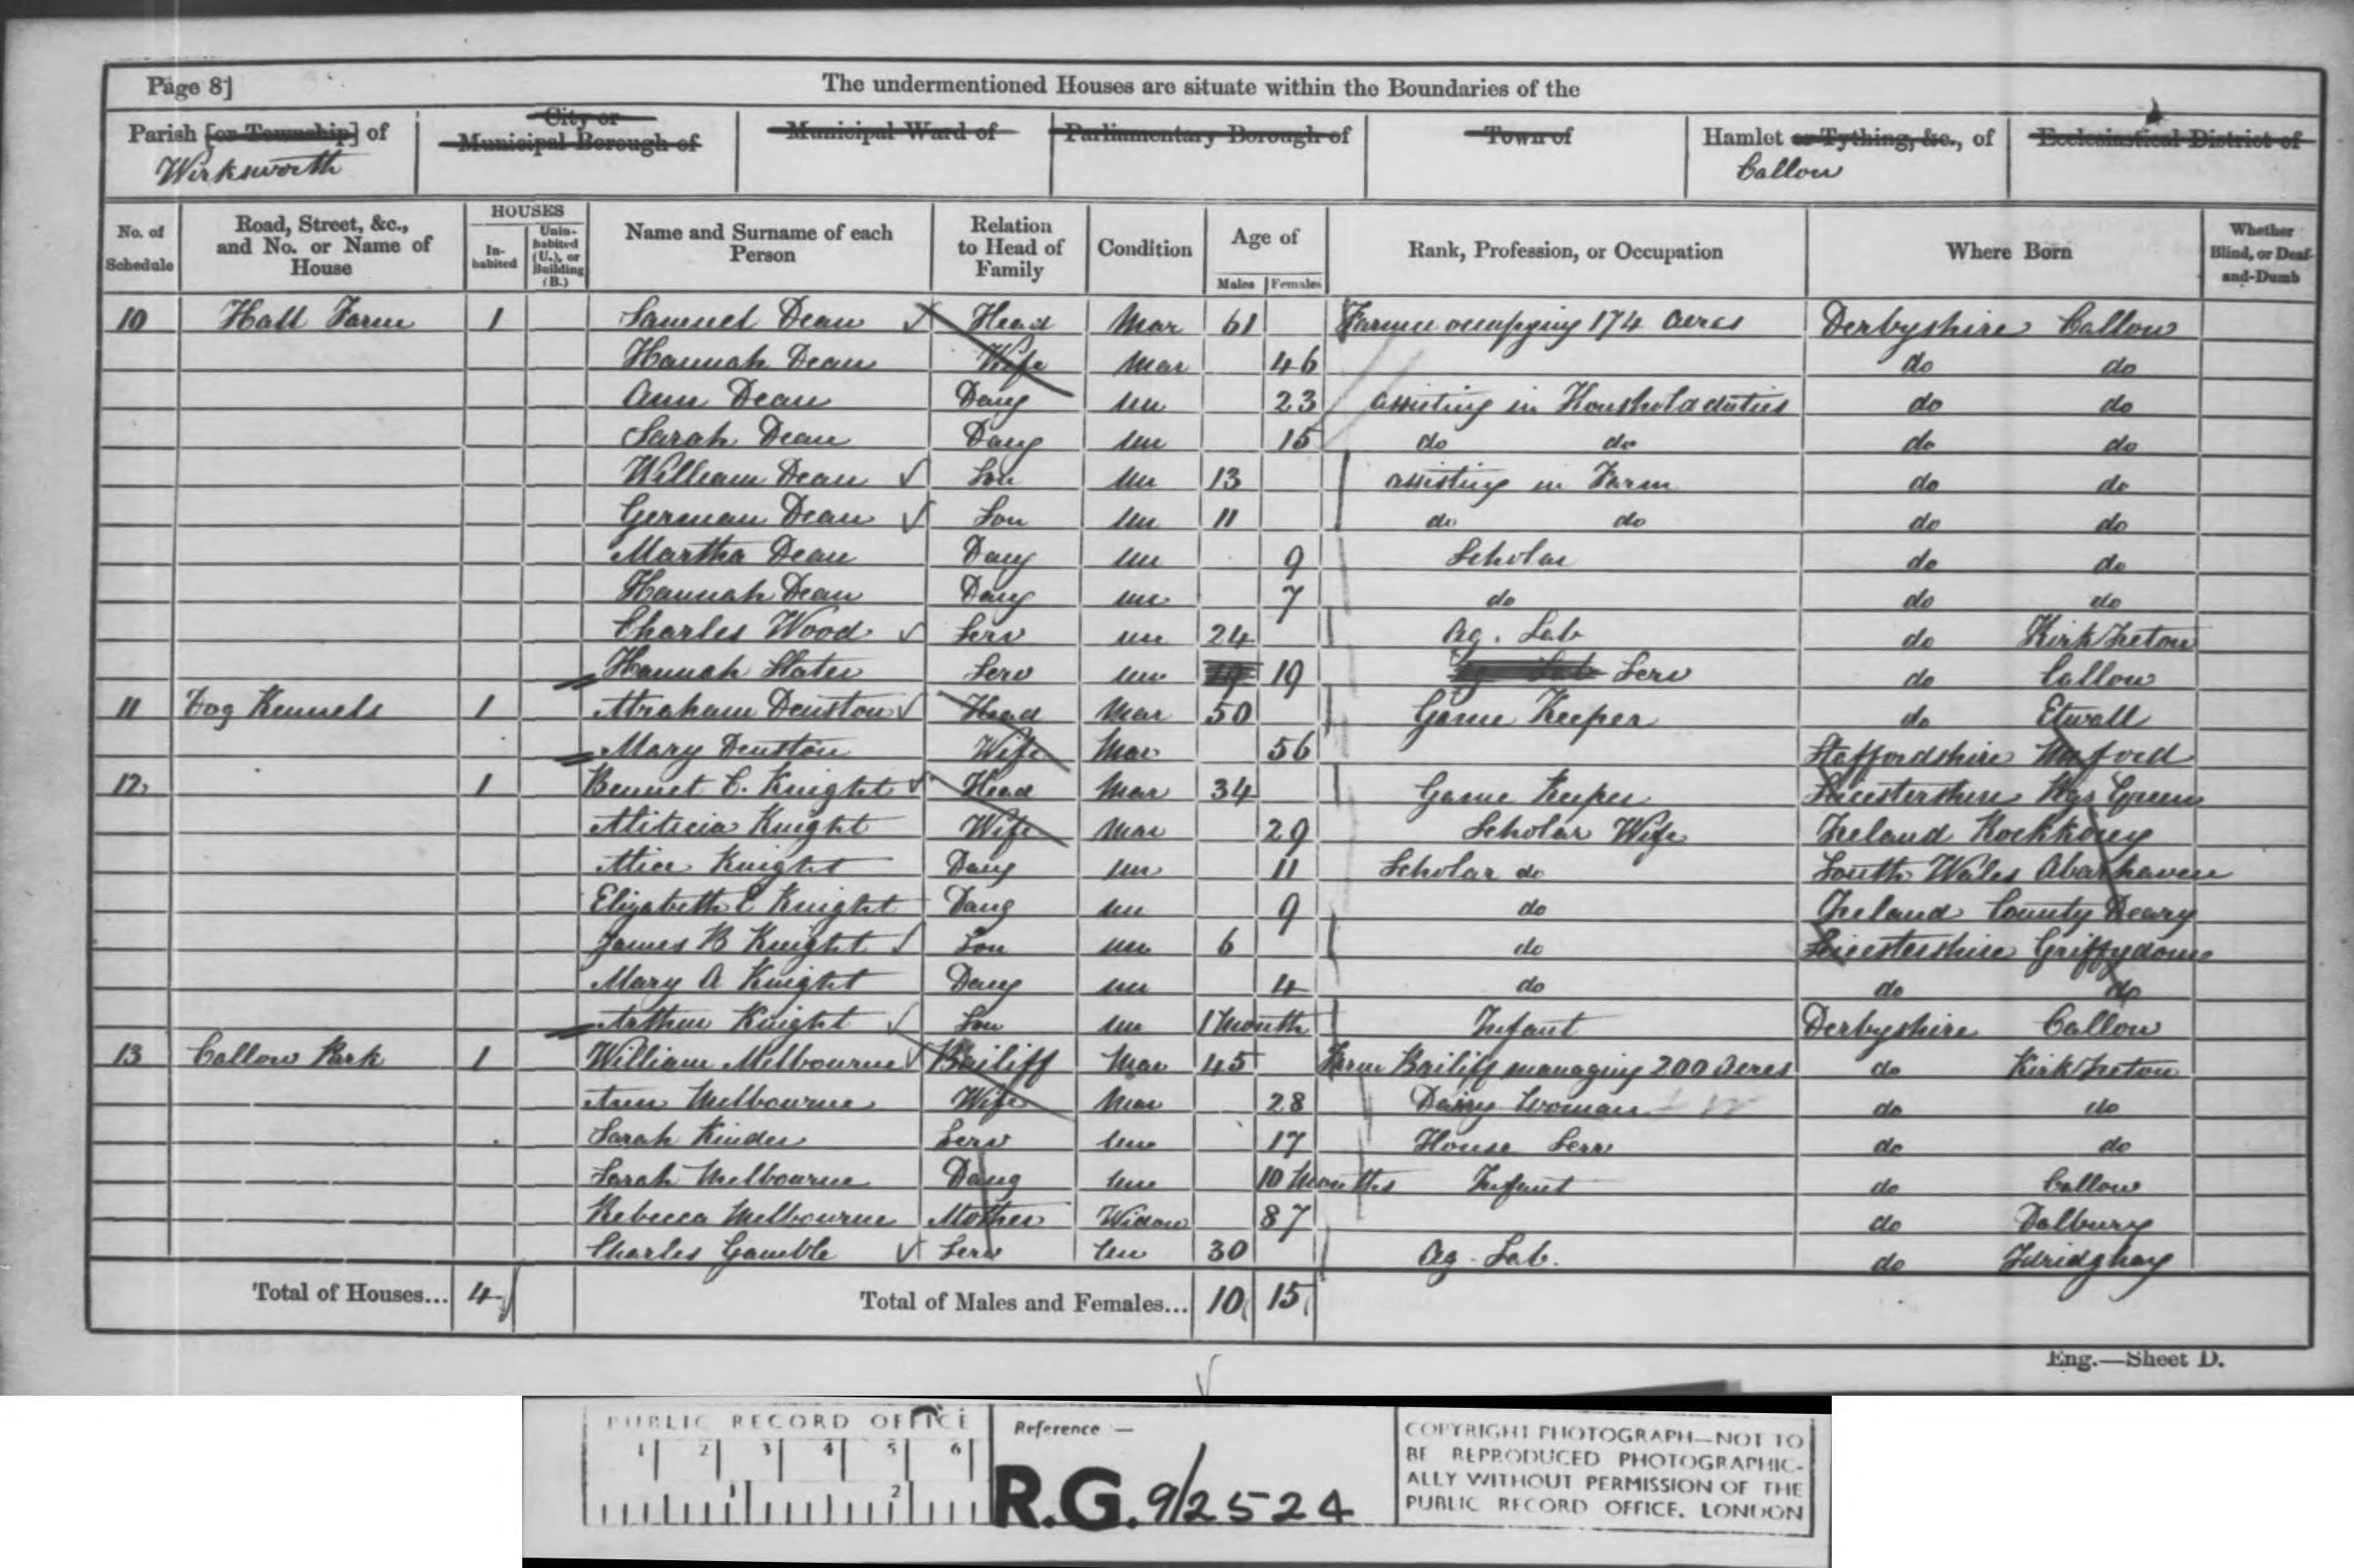 Page 8]
The undermentioned Houses are situate within the Boundaries of the
Parish [or Township] of Wirksworth
City or Municipal Borough of
Municipal Ward of
Parliamentary Borough of
Town of
Hamlet or Tything, &c., of Callow
Ecclesiastical District of
No. of Schedule
Road, Street, &c., and No. or Name of House
HOUSES
In-habited
Unin-habited (U.), or Building (B.)
Name and Surname of each Person
Relation to Head of Family
Condition
Age of
Males Females
Rank, Profession, or Occupation
Where Born
Whether Blind, or Deaf-and-Dumb
10 Hall Farm 1 Samuel Dean Head Mar 61 Farmer occupying 174 Acres Derbyshire Callow
Hannah Dean Wife Mar 46 do do
Ann Dean Daug Un 23 assisting in Houshold duties do do
Sarah Dean Daug Un 15 do do do do
William Dean Son Un 13 assisting in Farm do do
German Dean Son Un 11 do do do do
Martha Dean Daug Un 9 Scholar do do
Hannah Dean Daug Un 7 do do do
Charles Wood Serv Un 24 Ag. Lab do Kirk Ireton
Hannah Slater Serv Un 19 Serv do Callow
11 Dog Kennels 1 Abraham Denston Head Mar 50 Game Keeper do Etwall
Mary Denston Wife Mar 56 Staffordshire
12 1 Bennet C. Knight Head Mar 34 Game Keeper Leicestershire Green
Knight Wife Mar 29 Scholar Wife Ireland
Alice Knight Daug Un 11 Scholar do South Wales
Elizabeth E Knight Daug Un 9 do Ireland County
James B Knight Son Un 6 do Leicestershire Griffydome
Mary A Knight Daug Un 4 do do do
Arthur Knight Son Un 1 Month Infant Derbyshire Callow
13 Callow Park 1 William Melbourne Bailiff Mar 45 Farm Bailiff managing 200 Acres do Kirk Ireton
Ann Melbourne Wife Mar 28 Dairy Woman do do
Sarah Kinder Serv Un 17 House Serv do do
Sarah Melbourne Daug Un 10 Months Infant do Callow
Rebecca Melbourne Mother Widow 87 do Dalbury
Charles Gamble Serv Un 30 Ag. Lab. do Idridghay
Total of Houses... 4
Total of Males and Females... 10 15
Eng.—Sheet D.
PUBLIC RECORD OFFICE
1 2 3 4 5 6
1 2
Reference :—
R.G. 9/2524
COPYRIGHT PHOTOGRAPH—NOT TO
BE REPRODUCED PHOTOGRAPHIC-
ALLY WITHOUT PERMISSION OF THE
PUBLIC RECORD OFFICE, LONDON